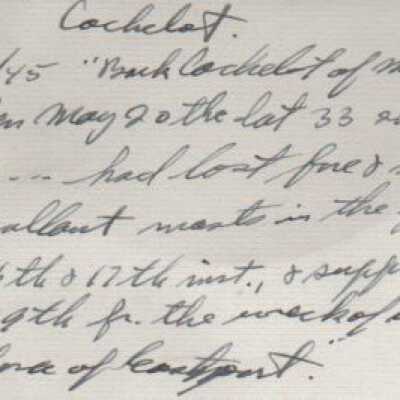 Cachelot.
/45 "Bark Cachelot of
May 20 the lat 33
... had lost fore &
gallant masts in the
16th & 17th inst., &
9th fr. the wreck of
of Eastport."